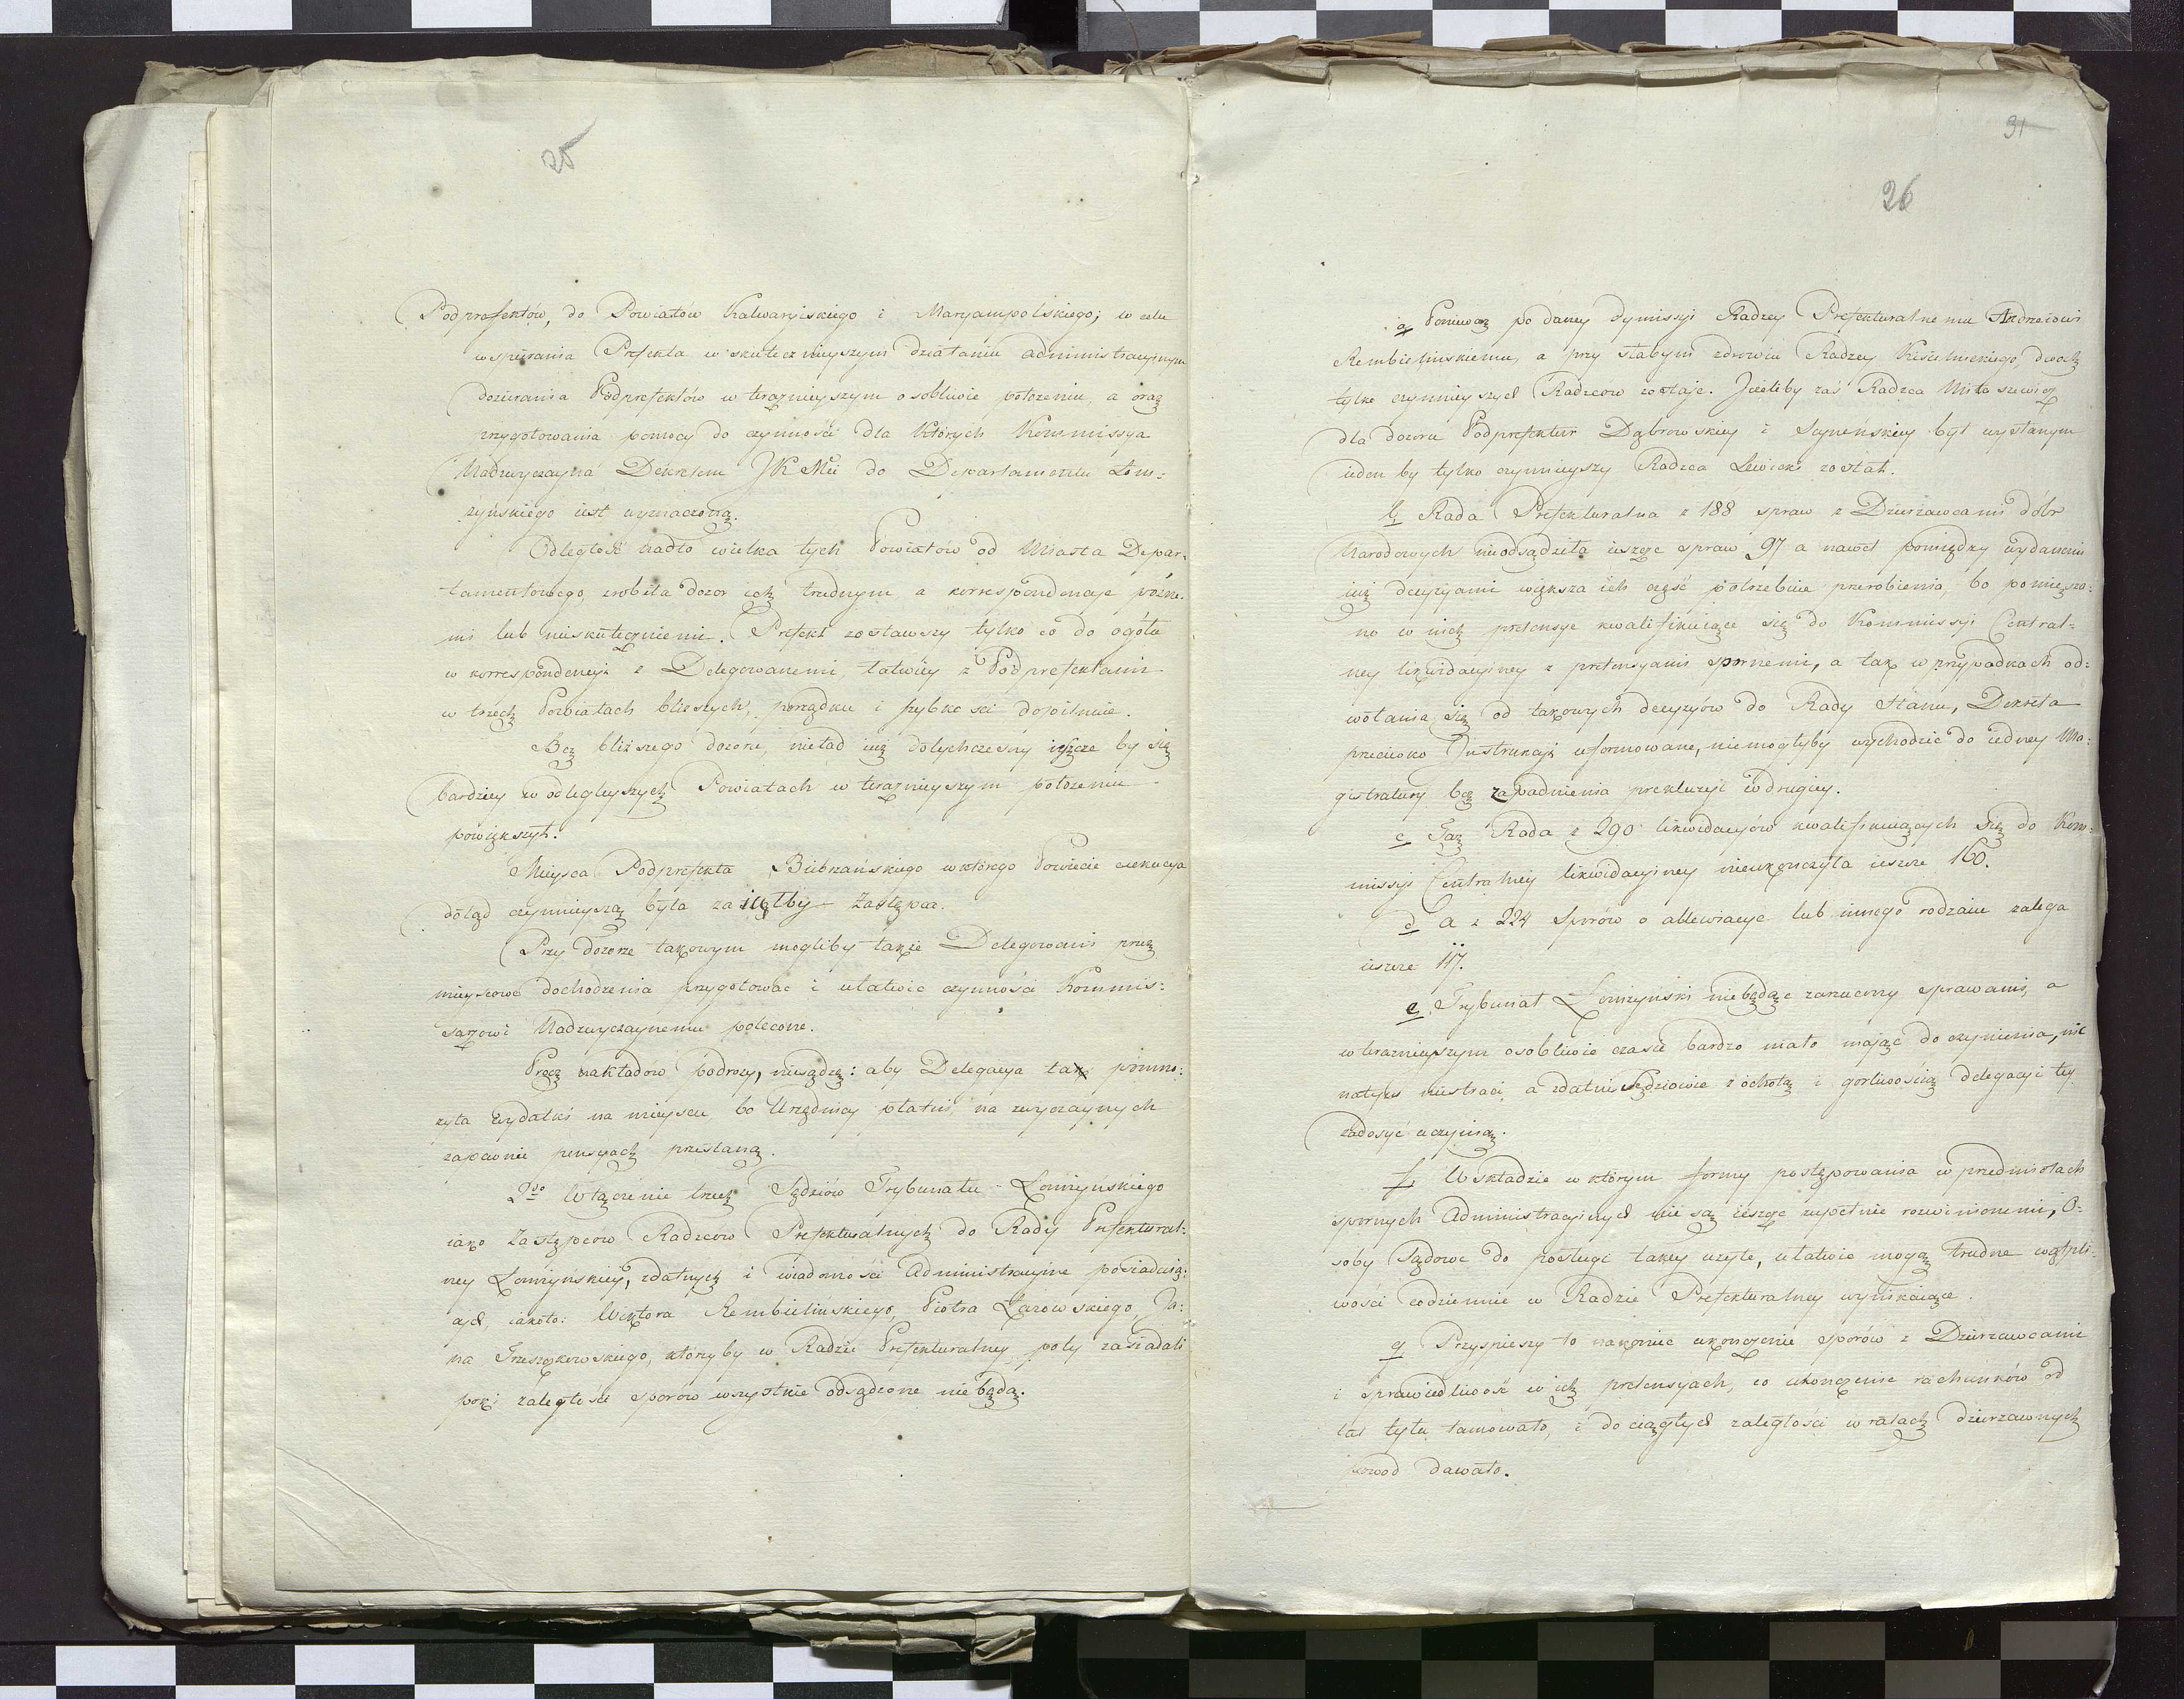 25
Podprefektów, do Powiatów Kalwaryiskiego i Maryampolskiego; w celu
wspierania Prefekta w skutecznieyszym działaniu administracyinym
dozierania Podprefektów w teraznieyszym osobliwie położeniu, a oraz
przygotowania pomocy do czynności dla których Kommissya
Nadzwyczayna Dekretem JK Mci do Departamentu Łom:
żyńskiego iest wyznaczoną.
Odległość nadto wielka tych Powiatów od Miasta Depar:
tamentowego, zrobiła dozor ich trudnym a korrespondencye pózne:
mi lub nieskutecznemi. Prefekt zostawszy tylko co do ogółu
w korrespondencyi z Delegowanemi, łatwiey z Podprefektami
w trzech Powiatach bliższych, porządku i szybkości dopilnuie.
Bez bliższego dozoru, nieład iuż dotychczesny ieszcze by się
bardziey w odlegleyszych Powiatach w teraznieyszym położeniu
powiększył.
Mieysca Podprefekta Biebrzańskiego w którego Powiecie exekucya
dotąd czynnieyszą była zaiąłby Zastępca.
Przy dozorze takowym mogliby także Delegowani przez
mieyscowe dochodzenia przygotować i ułatwić czynności Kommis:
sarzowi Nadzwyczaynemu polecone.
Prócz nakładów podroży, niesądzę: aby Delegacya ta pomno:
żyła wydatki na mieyscu bo Urzędnicy płatni, na zwyczaynych
zapewnie pensyach przestaną.
2do Włączenie trzech Sędziów Trybunału Łomżyńskiego
iako Zastępców Radzców Prefekturalnych do Rady Prefektural:
ney Łomżyńskiey, zdatnych i wiadomości Administracyine posiadaią:
cych, iakoto: Wiktora Rembielińskiego, Piotra Łazowskiego, Ja:
na Trzeszkowskiego, którzyby w Radzie Prefekturalney poty zasiadali
poki zaległości sporów wszystkie odsądzone nie będą.
31
26
a Ponieważ po daney dymissyi Radzcy Prefekturalnemu Andrzeiowi
Rembielinskiemu, a przy słabym zdrowiu Radzcy Kisielnickiego, dwoch
tylko czynnieyszych Radzców zostaje. Jeżeliby zaś Radzca Miłoszewicz
dla dozoru Podprefektur Dąbrowskiey i Seyneńskiey był wysłanym
ieden by tylko czynnieyszy Radzca Lewicki został.
b, Rada Prefekturalna z 188 spraw z Dzierzawcami dóbr
Narodowych nieodsądziła ieszcze spraw 97 a nawet pomiędzy wydanemi
iuż decyzyami większa ich część potrzebuie przerobienia, bo pomiesza:
no w nich pretensye kwalifikuiące się do Kommissyi Central:
ney likwidacyiney z pretensyami spornemi, a tak w przypadkach od:
wołania się od takowych decyzyów do Rady Stanu, Dekreta
przeciwko Instrukcyi uformowane, niemogłyby wychodzić do iedney Ma:
gistratury bez zapadnienia prekluzyi w drugiey.
c Taż Rada z 290 likwidacyów kwalifikuiących się do Kom:
missyi Centralney likwidacyiney nieukończyła ieszcze 160.
d a z 224 sporów o ablewiacye lub innego rodzaiu zalega
ieszcze 117.
e, Trybunał Łomżyński niebędąc zarzucony sprawami, a
w teraznieyszym osobliwie czasie bardzo mało mając do czynienia, nic
natym niestraci, a zdatni Sędziowie z ochotą i gorliwością delegacyi tey
zadosyć uczynią.
f, W składzie w którym formy postępowania w przedmiotach
spornych Administracyinych nie są ieszcze zupełnie rozwinionemi, O:
soby Sądowe do posługi takiey użyte, ułatwić mogą trudne wątpli:
wości codziennie w Radzie Prefekturalney wynikaiące.
g Przyspieszy to nakoniec ukończenie sporów z Dzierzawcami
i sprawiedliwość w ich pretensyach, co ukończenie rachunków od
lat tylu tamowało, i do ciągłych zaległości w ratach dzierzawnych
powod dawało.